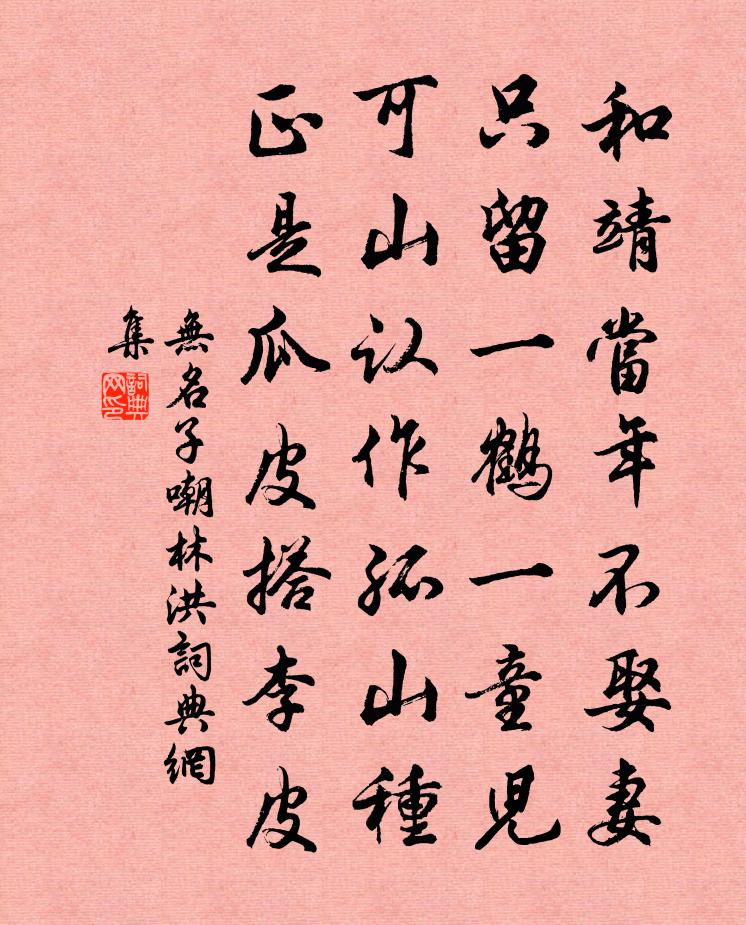 和靖當年不娶妻
只留一鶴一童兒
可山认作孤山種
正是瓜皮搭李皮
無名子嘲林洪詞典網
集
詞典
网印